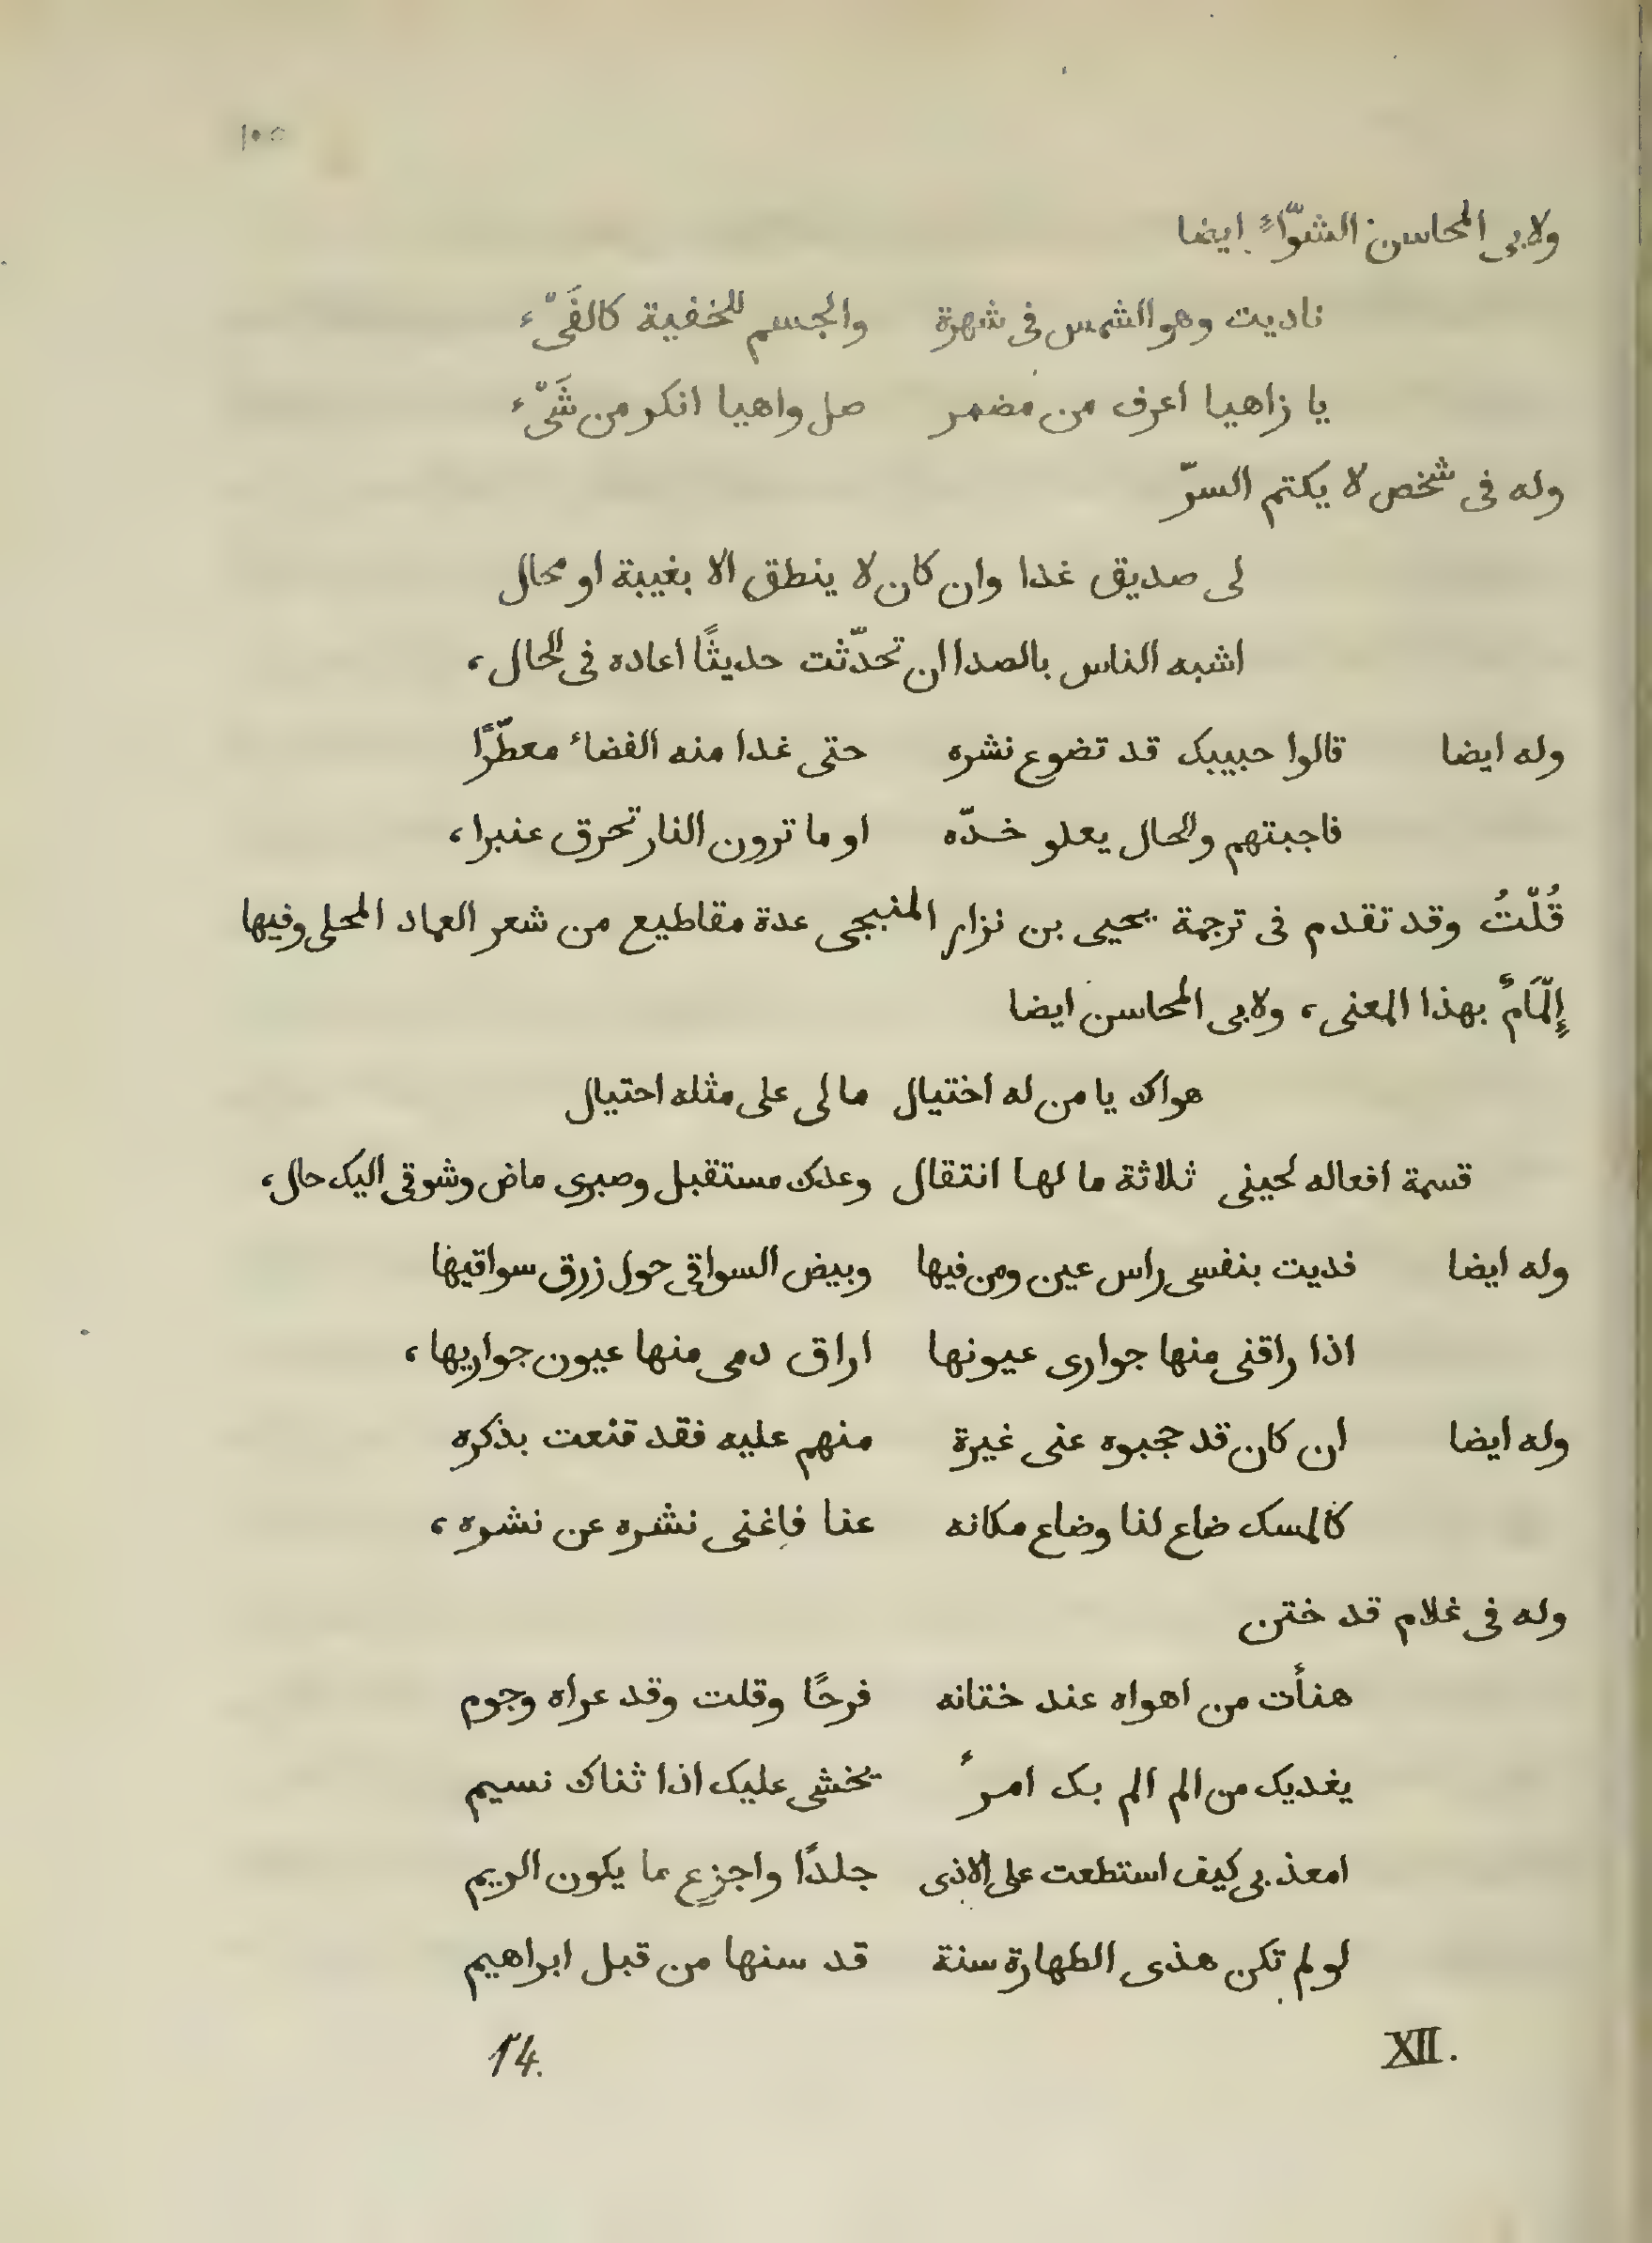 ١٠٥
ولابى المحاسن الشوّاءِ ايضا
ناديت وهو الشمس فى شهرة والجسم للخفية كالفَىّء
يا زاهيا اعرف من مضمر صل واهيا انكر من شَىّء
وله فى شخص لا يكتم السرّ
لى صديق غدا وان كان لا ينطق الا بغيبة او محال
اشبه الناس بالصدا ان تحدّثت حديثًا اعاده فى الحال،
وله ايضا قالوا حبيبك قد تضوع نشره حتى غدا منه الفضاء معطّرًا
فاجبتهم والحال يعلو خدّه او ما ترون النار تحرق عنبرا،
قُلْتُ وقد تقدم فى ترجمة يحيى بن نزار المنبجى عدة مقاطيع من شعر العماد المحلى وفيها
إِلْمَامٌ بهذا المعنى، ولابى المحاسن ايضا
هواك يا من له اختيال ما لى على مثله احتيال
قسمة افعاله لحينى ثلاثة ما لها انتقال وعدك مستقبل وصبرى ماض وشوقى اليك حال،
وله ايضا فديت بنفسى راس عين ومن فيها وبيض السواقى حول زرق سواقيها
اذا راقنى منها جوارى عيونها اراق دمى منها عيون جواريها،
وله ايضا ان كان قد حجبوه عنى غيرة منهم عليه فقد قنعت بذكره
كالمسك ضاع لنا وضاع مكانه عنا فاغنى نشره عن نشره،
وله فى غلام قد ختن
هنأت من اهواه عند ختانه فرحًا وقلت وقد عراه وجوم
يفديك من الم الم بك امرءٌ يخشى عليك اذا ثناك نسيم
امعذبى كيف استطعت على الاذى جلدًا واجزع ما يكون الريم
لو لم تكن هذى الطهارة سنة قد سنها من قبل ابراهيم
XII. 14.